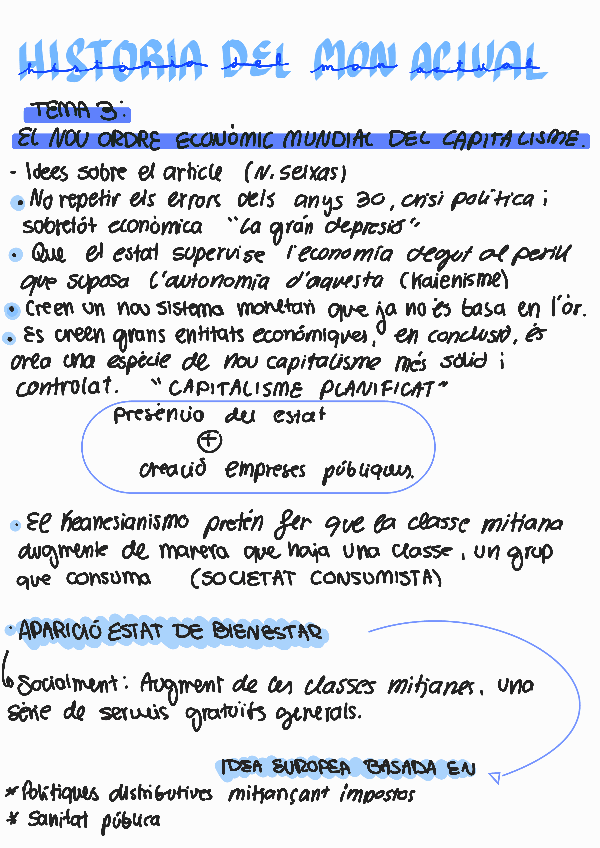 HISTORIA DEL MON ACTUAL
història del mon actual
TEMA 3:
EL NOU ORDRE ECONÒMIC MUNDIAL DEL CAPITALISME.
- Idees sobre el article (N. Seixas)
• No repetir els errors dels anys 30, crisi política i
sobretót econòmica "La gran depresió"
• Que el estat supervise l'economía degut al perill
que suposa l'autonomia d'aquesta (Kaienisme)
• Creen un nou sistema monetari que ja no és basa en l'òr.
• Es creen grans entitats económiques, en conclusió, és
crea una espècie de nou capitalisme més sòlid i
controlat. "CAPITALISME PLANIFICAT"
Presència del estat
+
creació empreses públiques.
• El Keanesianismo pretén fer que la classe mitjana
augmente de manera que haja una classe, un grup
que consuma (SOCIETAT CONSUMISTA)
• APARICIÓ ESTAT DE BIENESTAR
Socialment: Augment de les classes mitjanes, una
sèrie de serveis gratuïts generals.
IDEA EUROPEA BASADA EN
* Polítiques distributives mitjançant impostos
* Sanitat pública